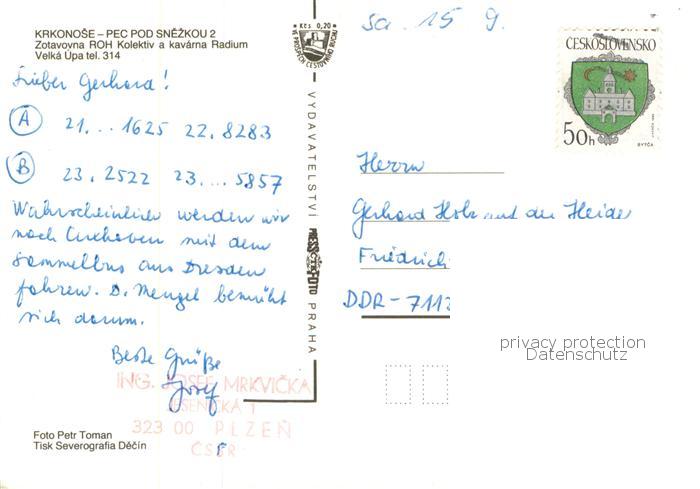 KRKONOŠE – PEC POD SNĚŽKOU 2
Zotavovna ROH Kolektiv a kavárna Radium
Velká Úpa tel. 314
Lieber Gerhard!
A 21... 1625 22.8283
B 23.2522 23.... 5857
Wahrscheinlich werden wir
nach Cuxhaven mit dem
Sammelbus aus Dresden
fahren. D. Mengel bemüht
sich darum.
Beste Grüße
Josef
ING. JOSEF MRKVIČKA
JESENICKÁ 1
323 00 PLZEŇ
ČSFR
Foto Petr Toman
Tisk Severografia Děčín
Kčs 0,20
VE PROSPĚCH CESTOVNÍHO RUCHU
VYDAVATELSTVÍ PRESSFOTO PRAHA
Sa. 15 9.
ČESKOSLOVENSKO
50h
BYTČA
Herrn
Gerhard Holz auf der Heide
Friedrich
DDR-7113
privacy protection
Datenschutz